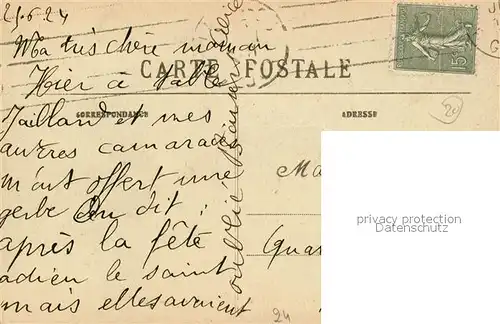 21.6.24
Ma très chère maman
CARTE POSTALE
Hier à
CORRESPONDANCE
ADRESSE
Tailland et mes
autres camarades
m'ont offert une
gerbe On dit :
après la fête
adieu le saint
mais elles avaient
oublié
15
20
Ma
Qua
24
privacy protection
Datenschutz